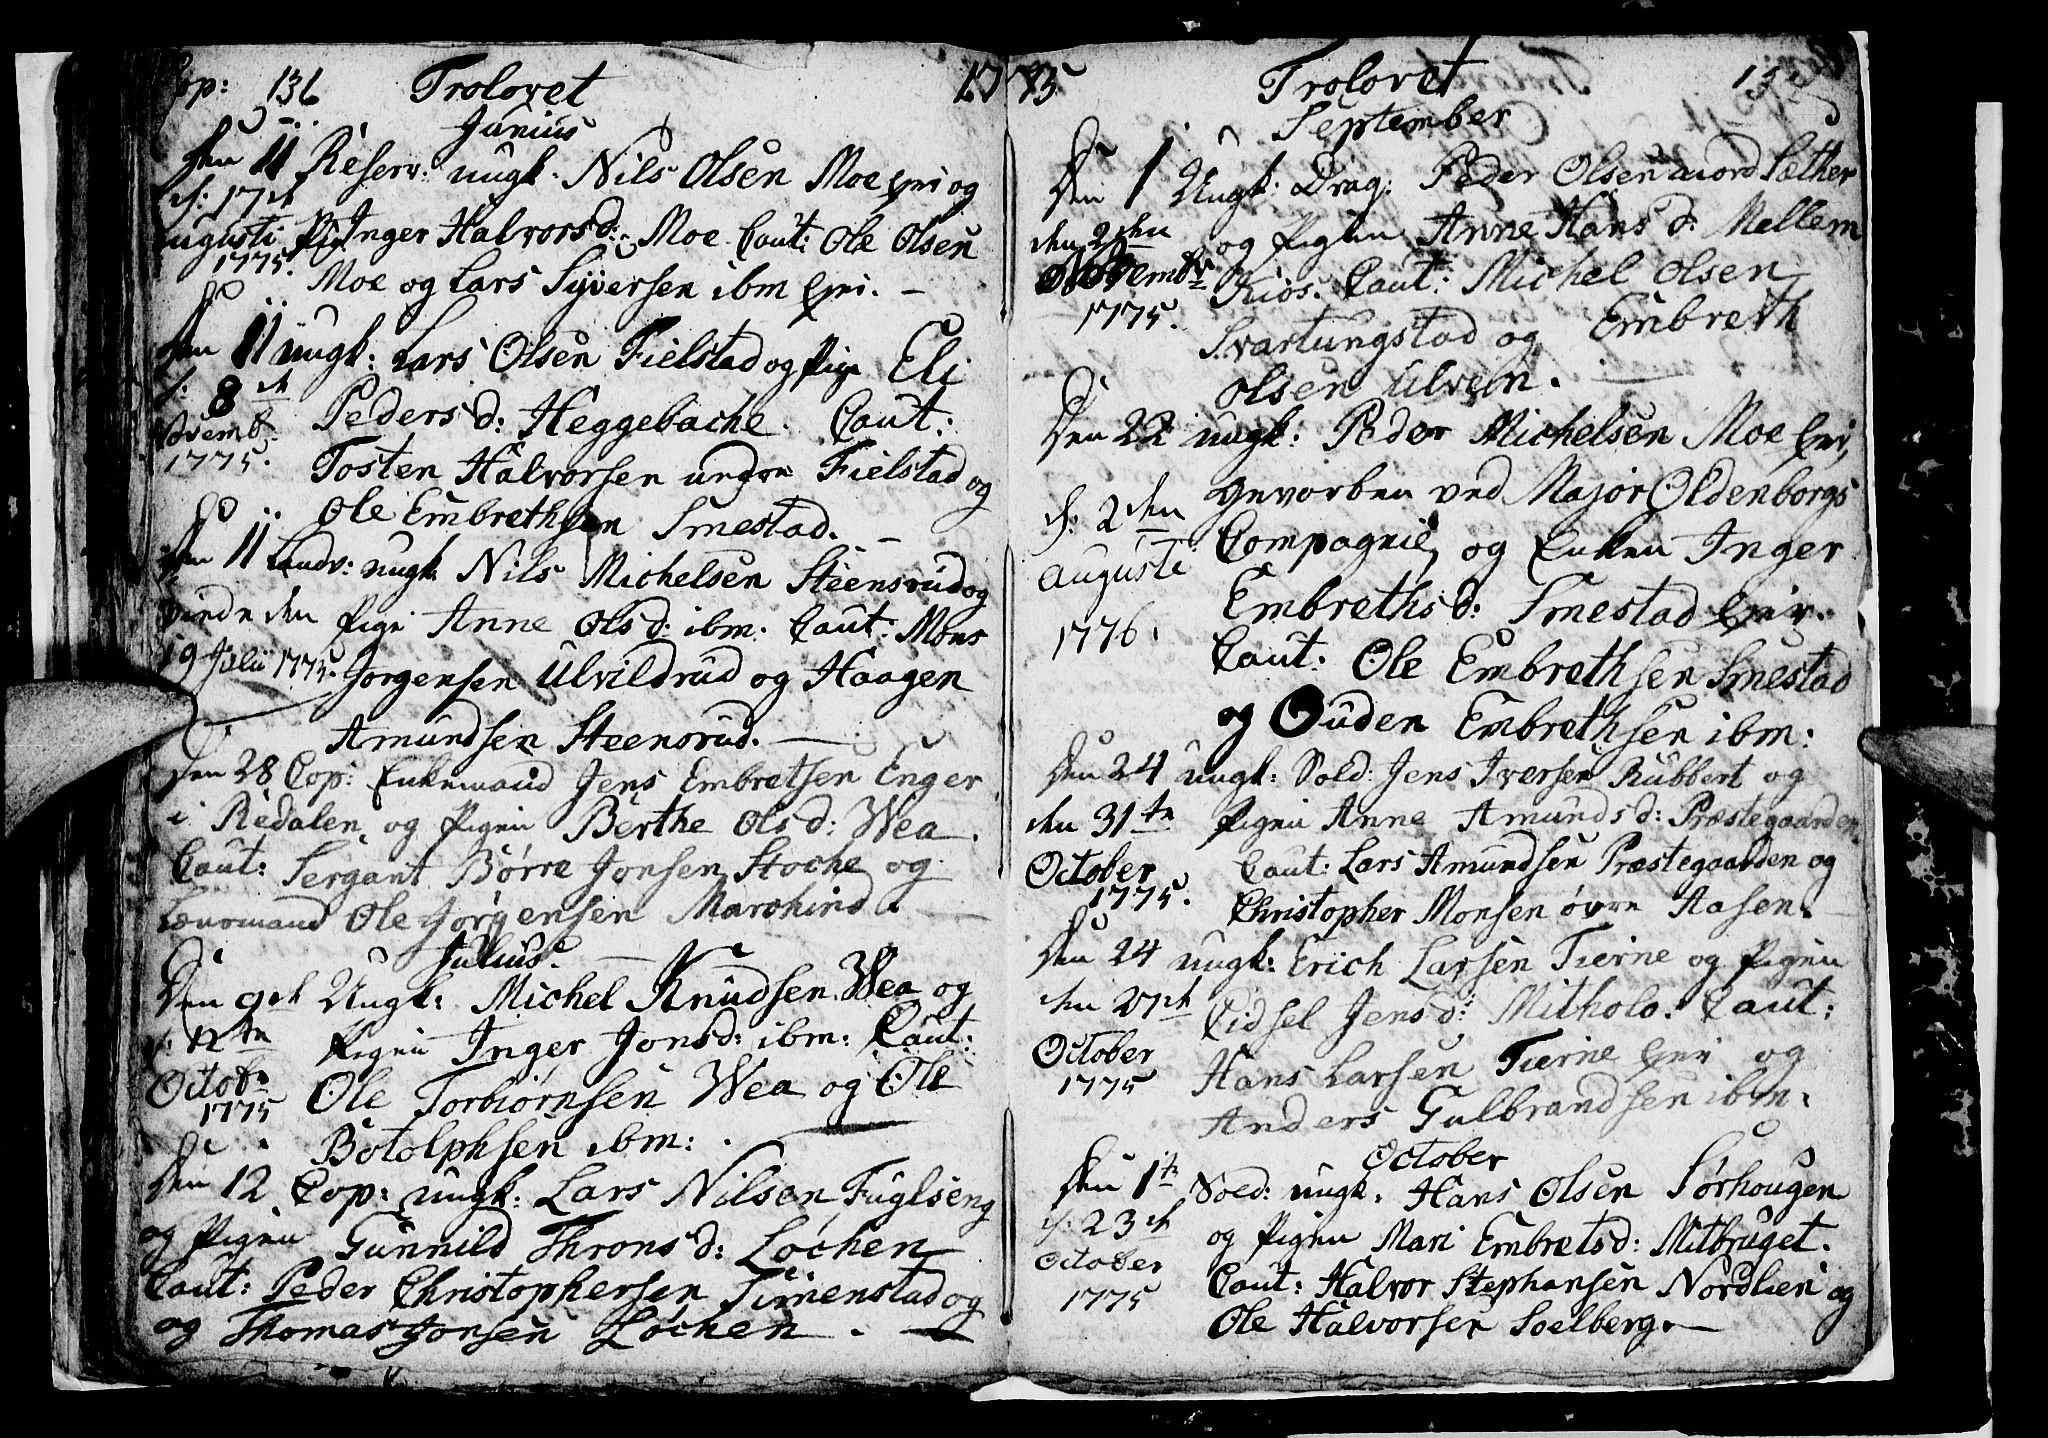 Cop: 136 Trolovet 17
Junius
Den 11 Reserv: ungk. Nils Olsen Moe og
d: 17de
Augusti Pig. Inger Halvorsd: Moe Caut: Ole Olsen
1775.
Moe og Lars Syversen ibm
Den 11 ungk: Lars Olsen Fielstad og Pige Eli
d: 8de
Novemb. Peders d: Heggebache. Caut:
1775.
Tosten Halvorsen nedre Fielstad og
Ole Embrethsen Smestad.
Den 11 Landv: ungk. Nils Michelsen Steensrud og
den Pige Anne Ols d: ibm. Caut: Mons
19 Julii 1775. Jorgensen Ulvildrud og Haagen
Amundsen Steensrud.
Den 28 Cop: Enkemand Jens Embretsen Enger
i Redalen og Pigen Berthe Ols d: Wea.
Caut: Sergant Børre Jonsen Stoche og
Lensmand Ole Jørgensen Marchind.
Julius.
Den 9de Ungk: Michel Knudsen Wea og
d: 12te Pigen Inger Jonsd: ibm: Caut:
Octobr
1775 Ole Torbiørnsen Wea og Ole
Botolphsen ibm:
Den 12 Cop: ungk: Lars Nilsen Fuglseng
og Pigen Gunnild Throns d: Løchen
Caut: Peder Christophersen Timenstad og
og Thomas Jonsen Løchen.
75 Trolovet
September
Den 1 Ungk: Drag: Peder Olsen nord Sæther
den 2den og Pigen Anne Hans d: Mellem
Novembr
1775. Kiøs. Caut: Michel Olsen
Svartungstad og Embreth
Olsen Ulven.
Den 22 ungk: Peder Michelsen Moe
gevorben ved Major Oldenborgs
d: 2den
Augusti Compagnie, og Enken Inger
1776. Embreths d: Smestad
Caut: Ole Embrethsen Smestad
og Ouden Embrethsen ibm:
Den 24 ungk: Sold: Jens Iversen Rubbert og
den 31te Pigen Anne Amunds d: Præstegaarden.
October Caut: Lars Amundsen Præstegaarden og
1775. Christopher Monsen øvre Aasen.
Den 24 ungk: Erich Larsen Tierne og Pigen
den 27de Eidsel Jens d: Mitholo. Caut:
October Hans Larsen Tierne og
1775
Anders Gulbrandsen ibm.
October
Den 1te Soed: ungk. Hans Olsen Sørhougen
d: 23de og Pigen Mari Embretsd: Mitbruget.
October Caut: Halvor Stephansen Nordlien og
1775 Ole Halvorsen Soelberg.